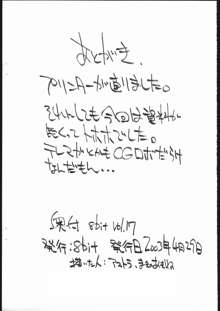 あとがき.
プリンターが直りました。
それにしても今回は資料が
無くってトホホでした。
テレビなんかもCGロボだらけ
なんだもん…
奥付 8bit vol.17
発行:8bit 発行日2003年4月29日
描いた人:アストラ、